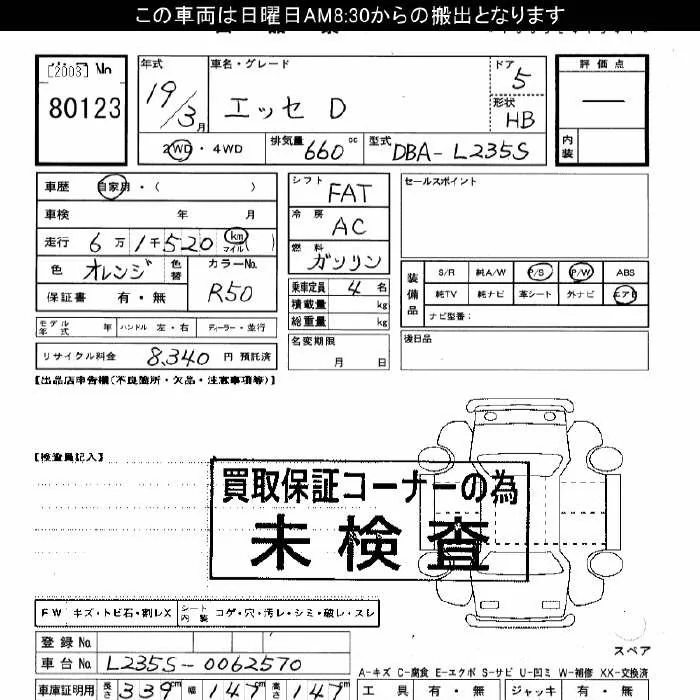 この車両は日曜日AM8:30からの搬出となります
[2003] No
80123
年式
19/3月
車名・グレード
エッセ D
ドア
5
形状
HB
評価点
—
内装
2WD・4WD
排気量 660 cc
型式 DBA-L235S
車歴 自家用・( )
車検 年 月
走行 6万1千520 km マイル( )
色 オレンジ 色替
カラーNo.
R50
保証書 有・無
シフト FAT
冷房 AC
燃料 ガソリン
乗車定員 4 名
積載量 kg
総重量 kg
セールスポイント
装備品
S/R 純A/W P/S P/W ABS
純TV 純ナビ 革シート 外ナビ エアB
ナビ型番:
モデル年式 年 ハンドル 左・右 ディーラー・並行
リサイクル料金 8,340 円 預託済
名変期限
月 日
後日品
【出品店申告欄(不良箇所・欠品・注意事項等)】
【検査員記入】
買取保証コーナーの為
未検査
FW キズ・トビ石・割レX
シート内装 コゲ・穴・汚レ・シミ・破レ・スレ
スペア
登録No
車台No. L235S-0062570
A-キズ C-腐食 E-エクボ S-サビ U-凹ミ W-補修 XX-交換済
車庫証明用 長さ 339cm 幅 147cm 高さ 147cm
工具 有・無 ジャッキ 有・無